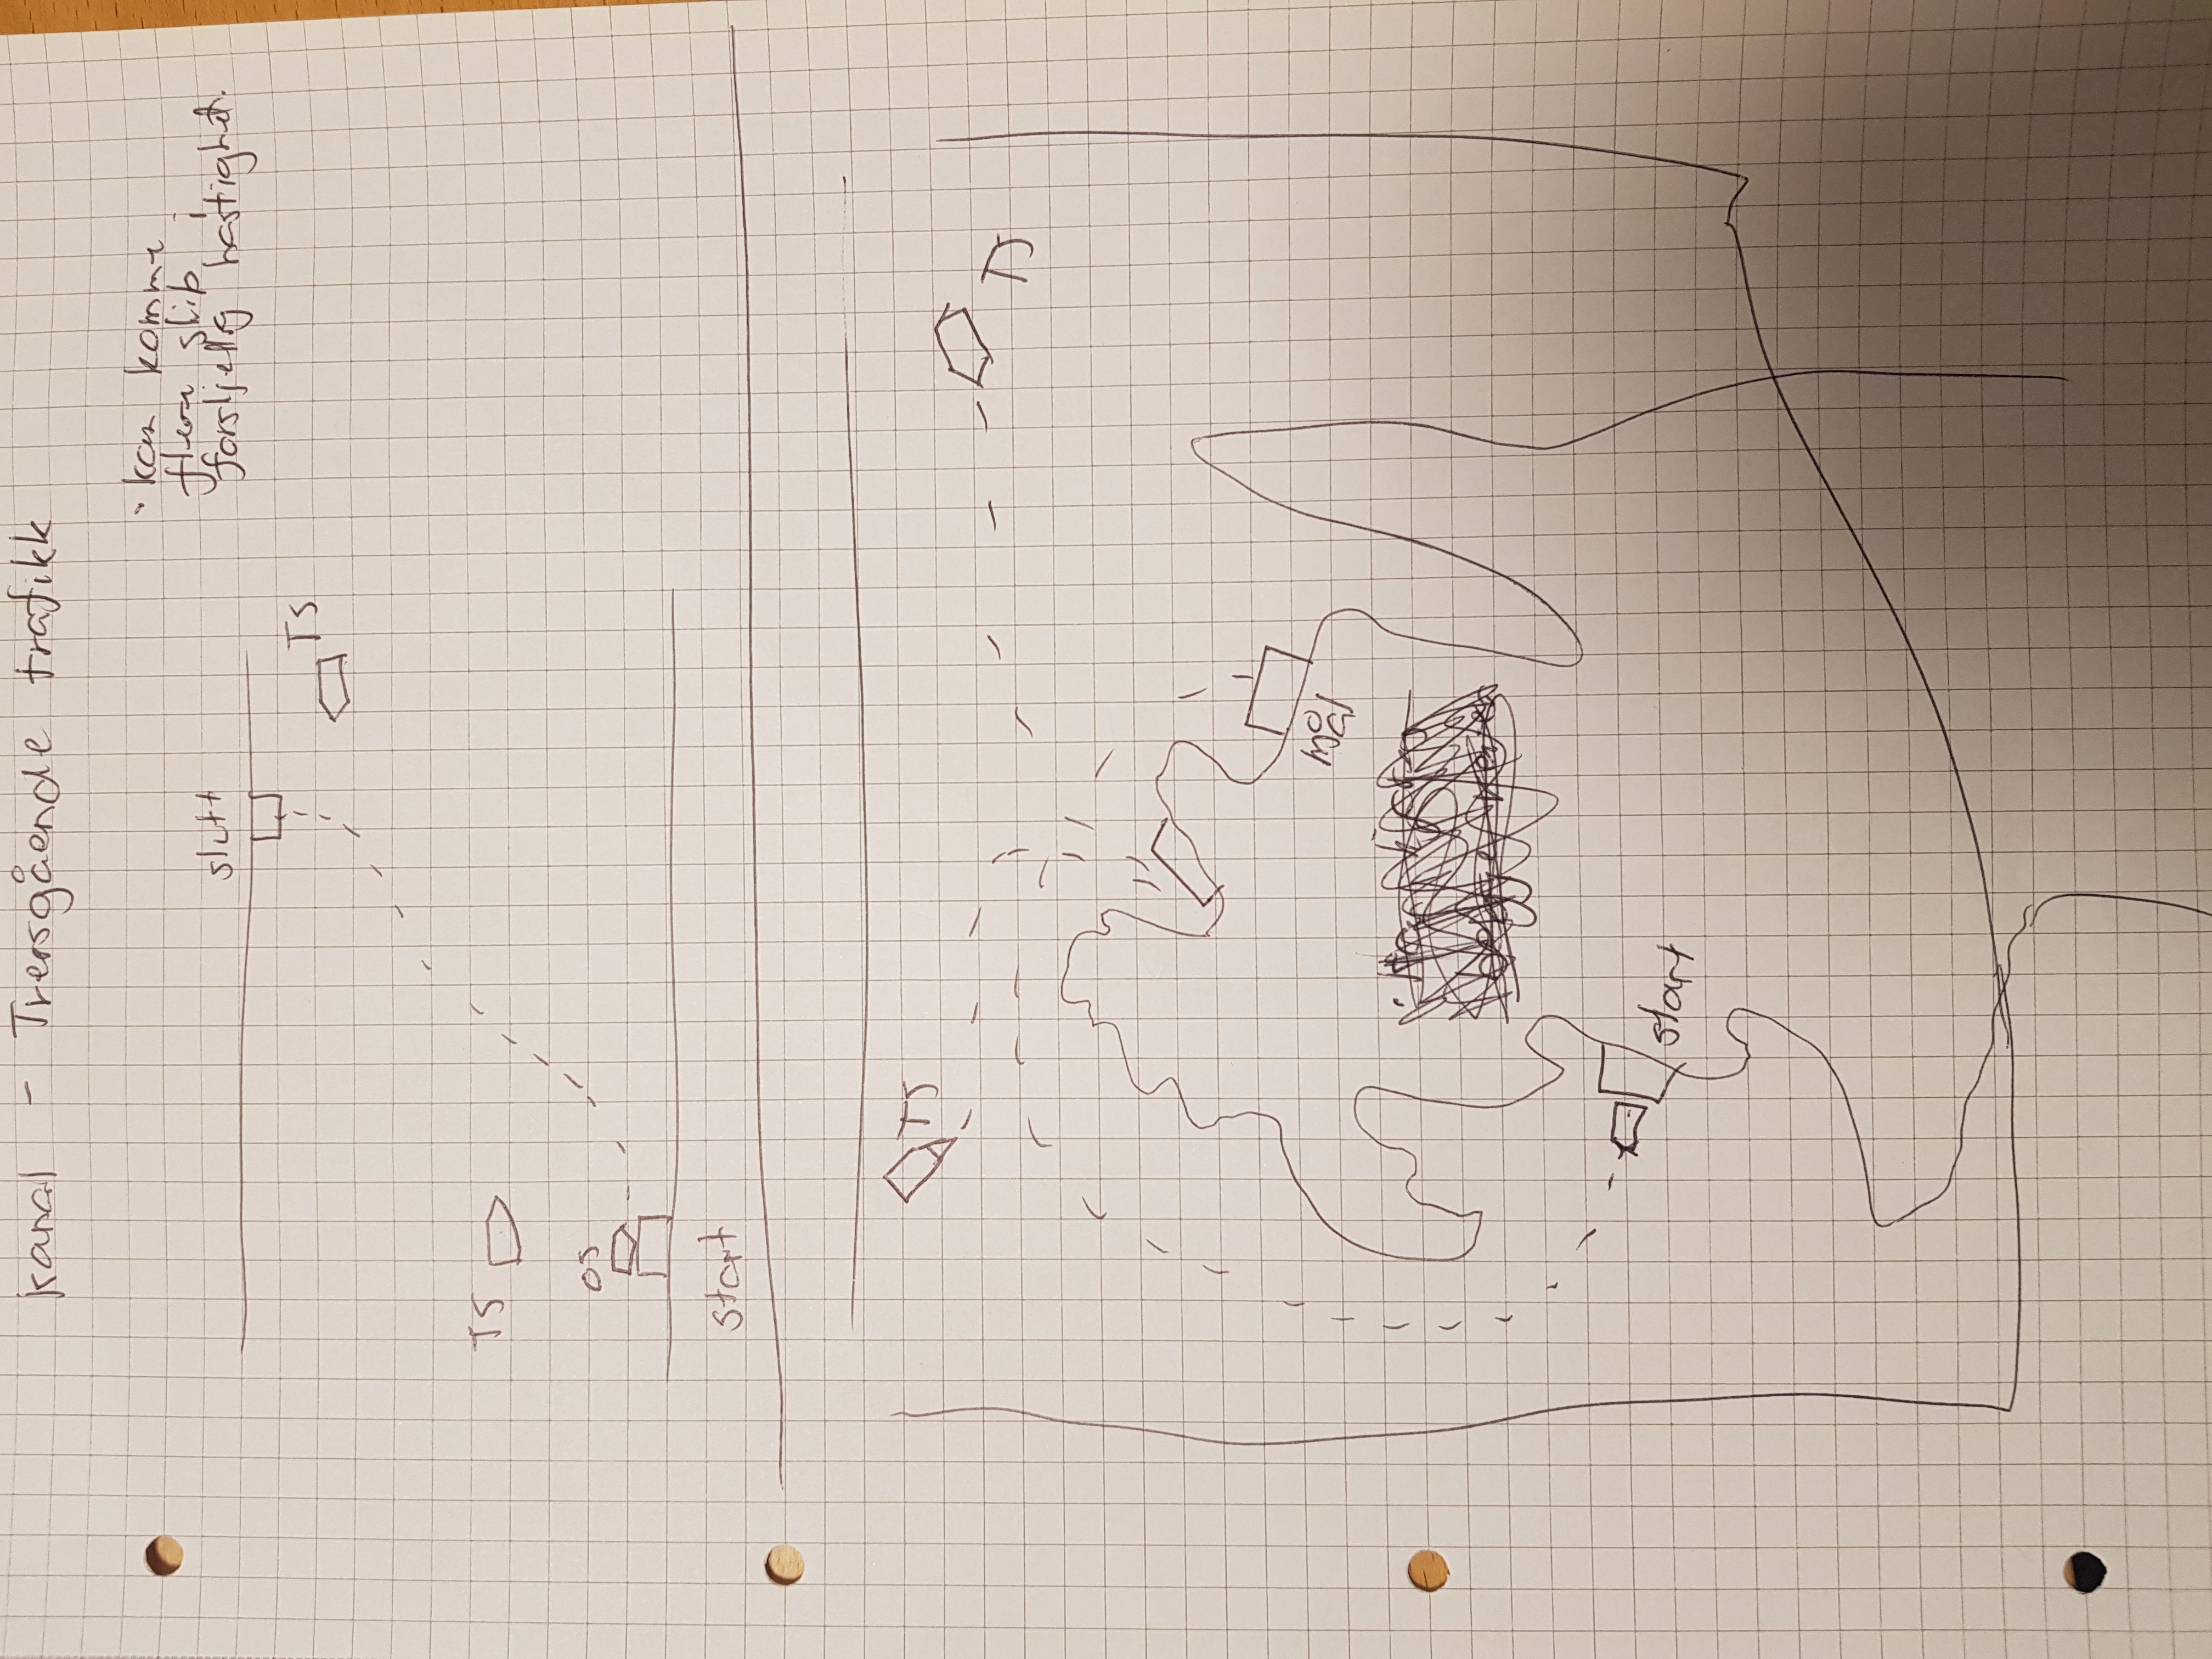 kanal - Tversgående trafikk
· kan komme
flere skib i
forskjellig hastighet.
slutt
TS
TS
OS
start
TS
TS
mål
start